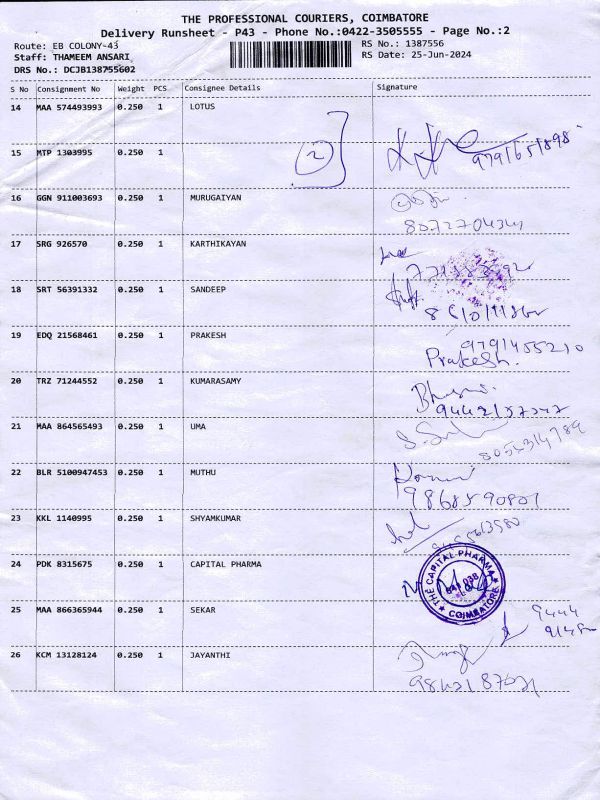 THE PROFESSIONAL COURIERS, COIMBATORE
Delivery Runsheet - P43 - Phone No.:0422-3505555 - Page No.:2
Route: EB COLONY-43
RS No.: 1387556
Staff: THAMEEM ANSARI
RS Date: 25-Jun-2024
DRS No.: DCJB138755602
S No Consignment No Weight PCS Consignee Details Signature
14 MAA 574493993 0.250 1 LOTUS
15 MTP 1303995 0.250 1
2
9791651898
16 GGN 911003693 0.250 1 MURUGAIYAN
17 SRG 926570 0.250 1 KARTHIKAYAN
18 SRT 56391332 0.250 1 SANDEEP
19 EDQ 21568461 0.250 1 PRAKESH
9791455210
Prakesh.
20 TRZ 71244552 0.250 1 KUMARASAMY
21 MAA 864565493 0.250 1 UMA
8056314789
22 BLR 5100947453 0.250 1 MUTHU
23 KKL 1140995 0.250 1 SHYAMKUMAR
24 PDK 8315675 0.250 1 CAPITAL PHARMA
THE CAPITAL PHARMA
COIMBATORE
25 MAA 866365944 0.250 1 SEKAR
9444
26 KCM 13128124 0.250 1 JAYANTHI